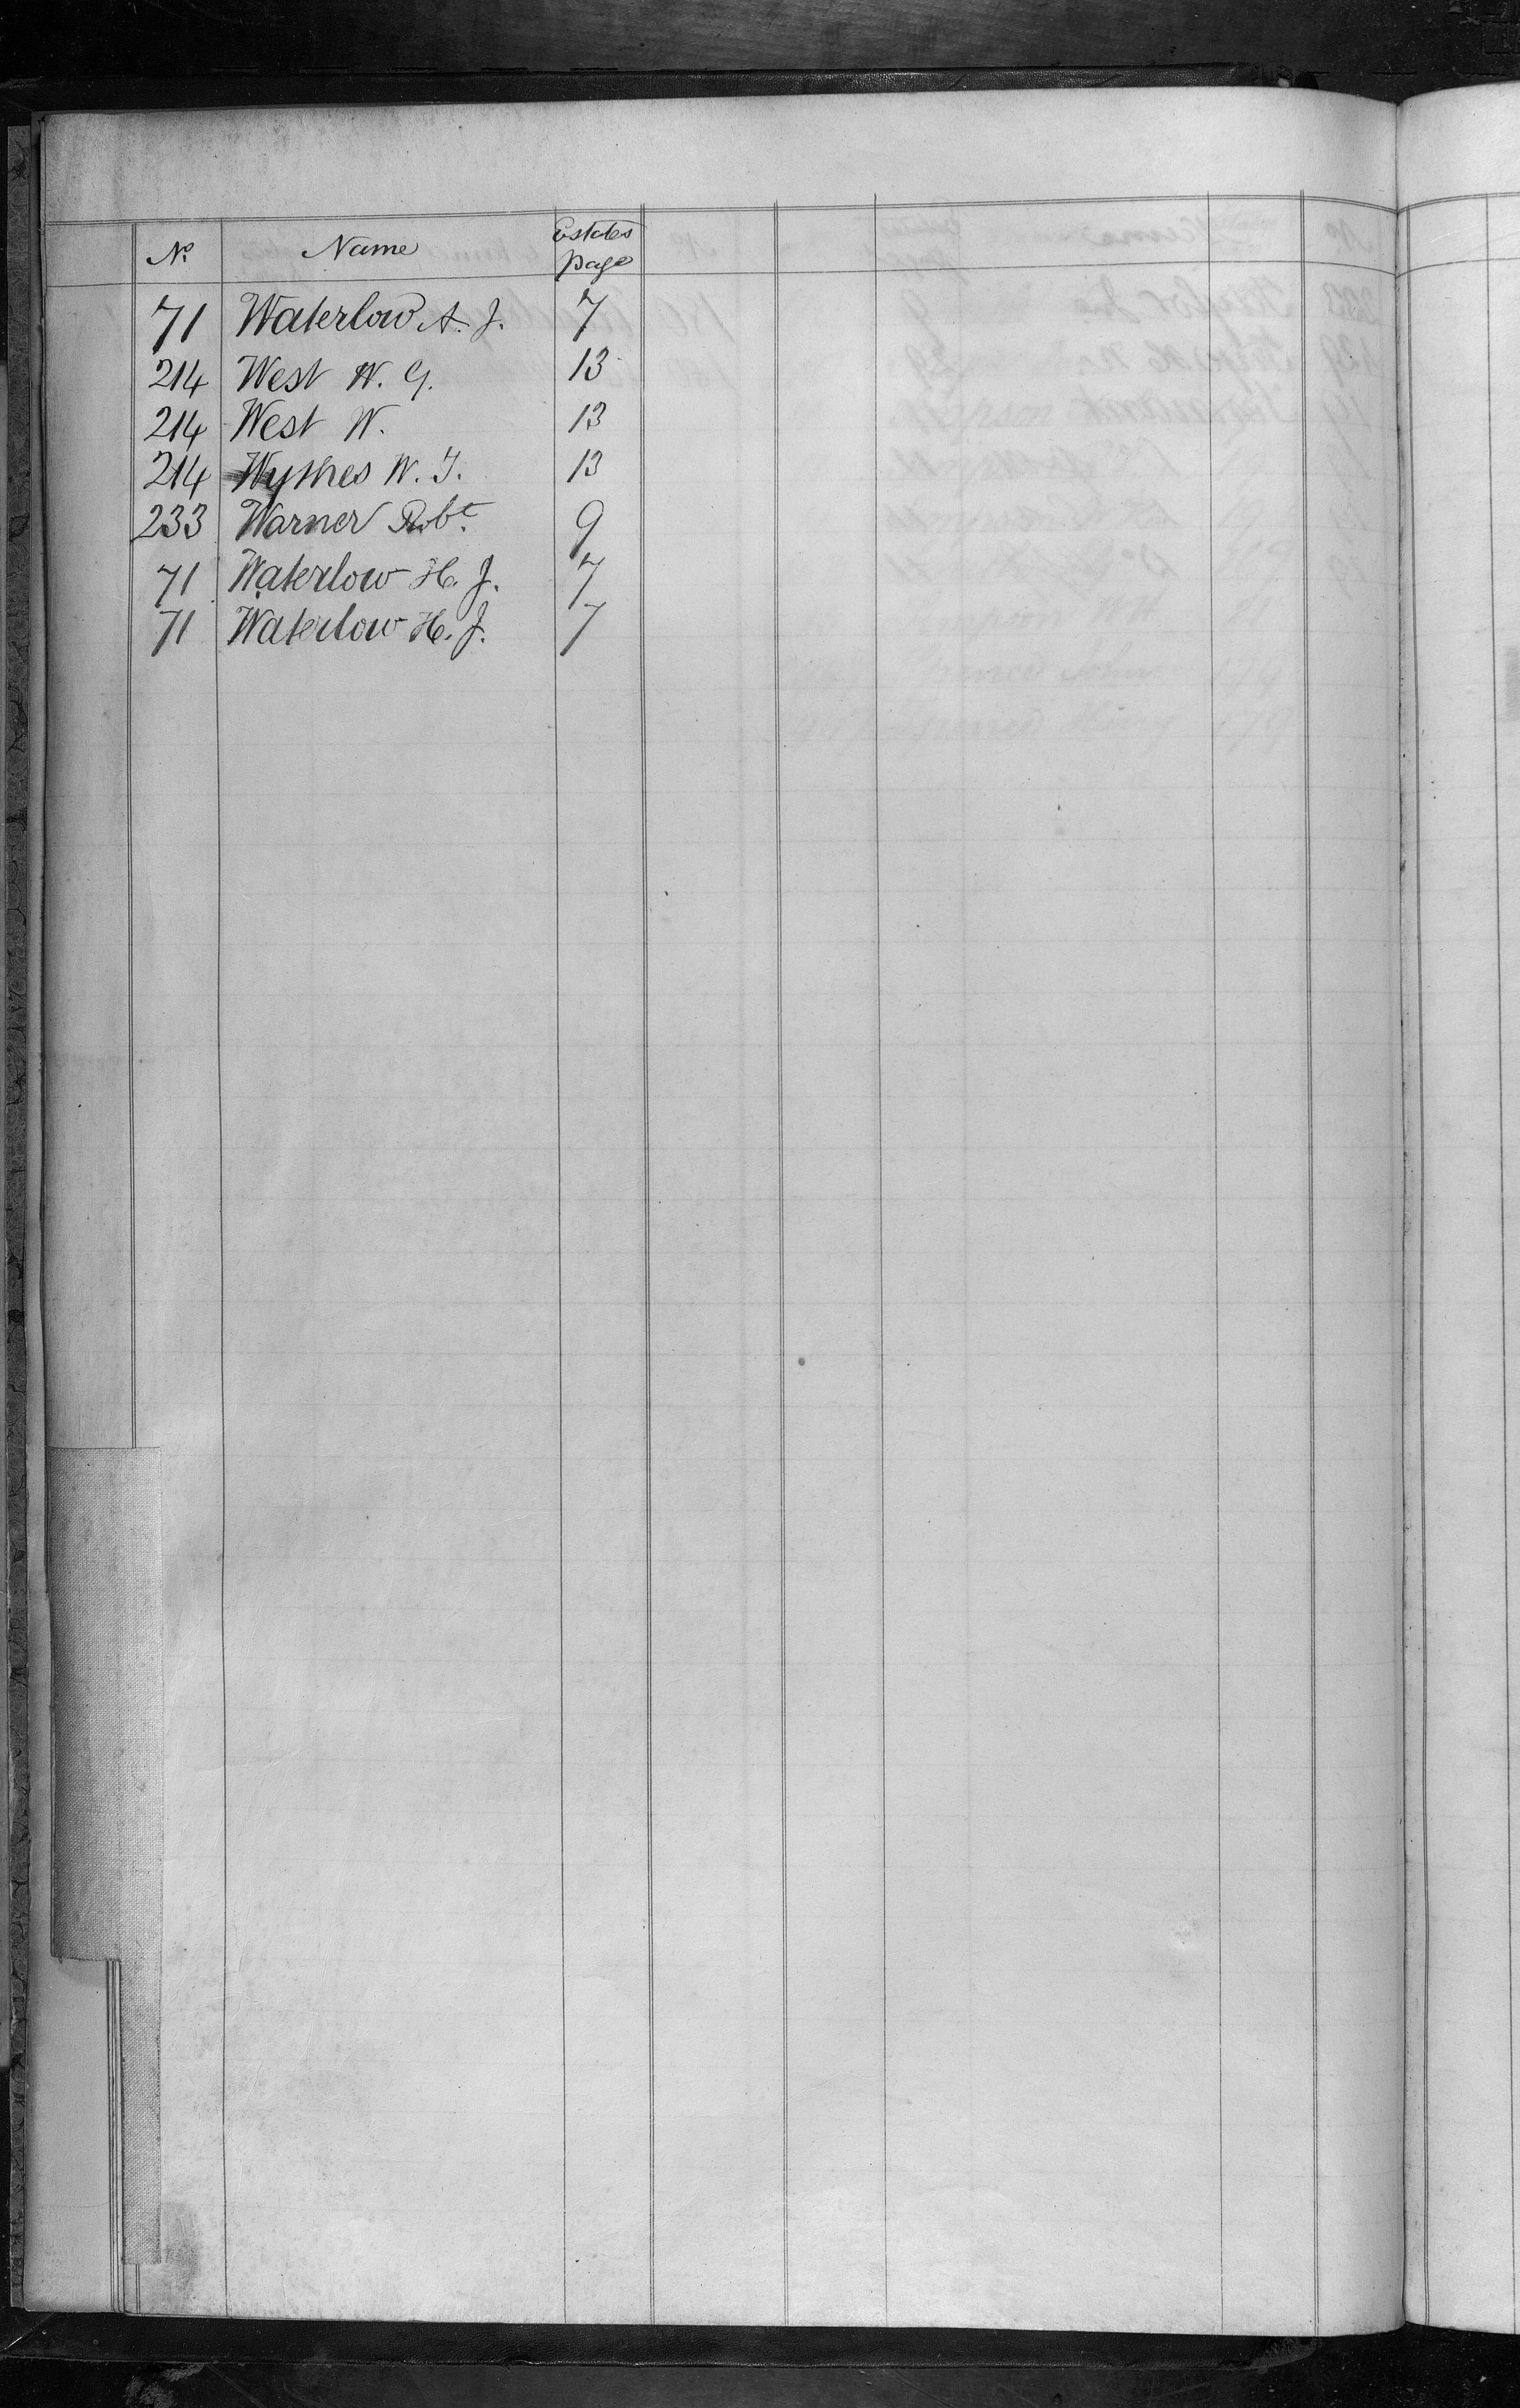 No. Name Estates page
71 Waterlow A. J. 7
214 West W. G. 13
214 West W. 13
214 Wythes W. J. 13
233 Warner Robt. 9
71 Waterlow H. J. 7
71 Waterlow H. J. 7